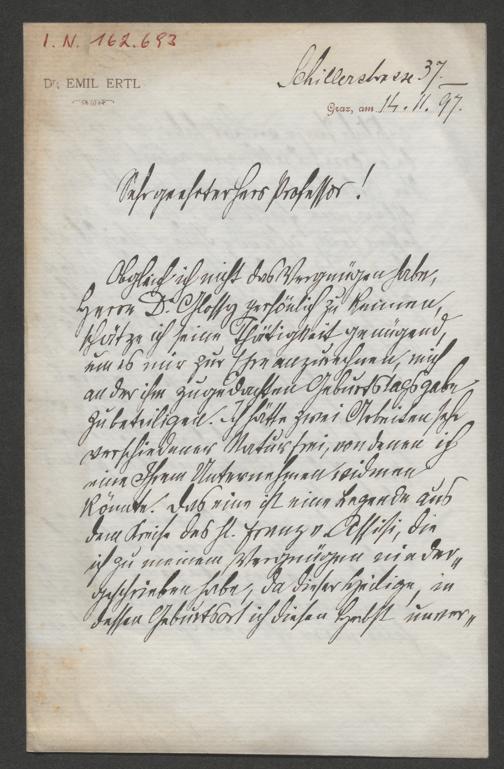 I. N. 162.693
DR. EMIL ERTL
Schillerstrasse 37.
Graz, am 14. 11. 97.
Sehr geehrter Herr Professor!
Obgleich ich nicht das Vergnügen habe,
Herrn Dr Glossy persönlich zu kennen,
schätze ich seine Thätigkeit genügend,
um es mir zur Ehre anzurechnen, mich
an der ihm zugedachten Geburtstagsgabe
zu beteiligen. Ich hätte zwei Arbeiten sehr
verschiedener Natur frei, von denen ich
eine Ihrem Unternehmen widmen
könnte. Das eine ist eine Legende aus
dem Kreise des hl. Franz v. Assisi, die
ich zu meinem Vergnügen nieder„
geschrieben habe, da dieser Heilige, in
dessen Geburtsort ich diesen Herbst unver„